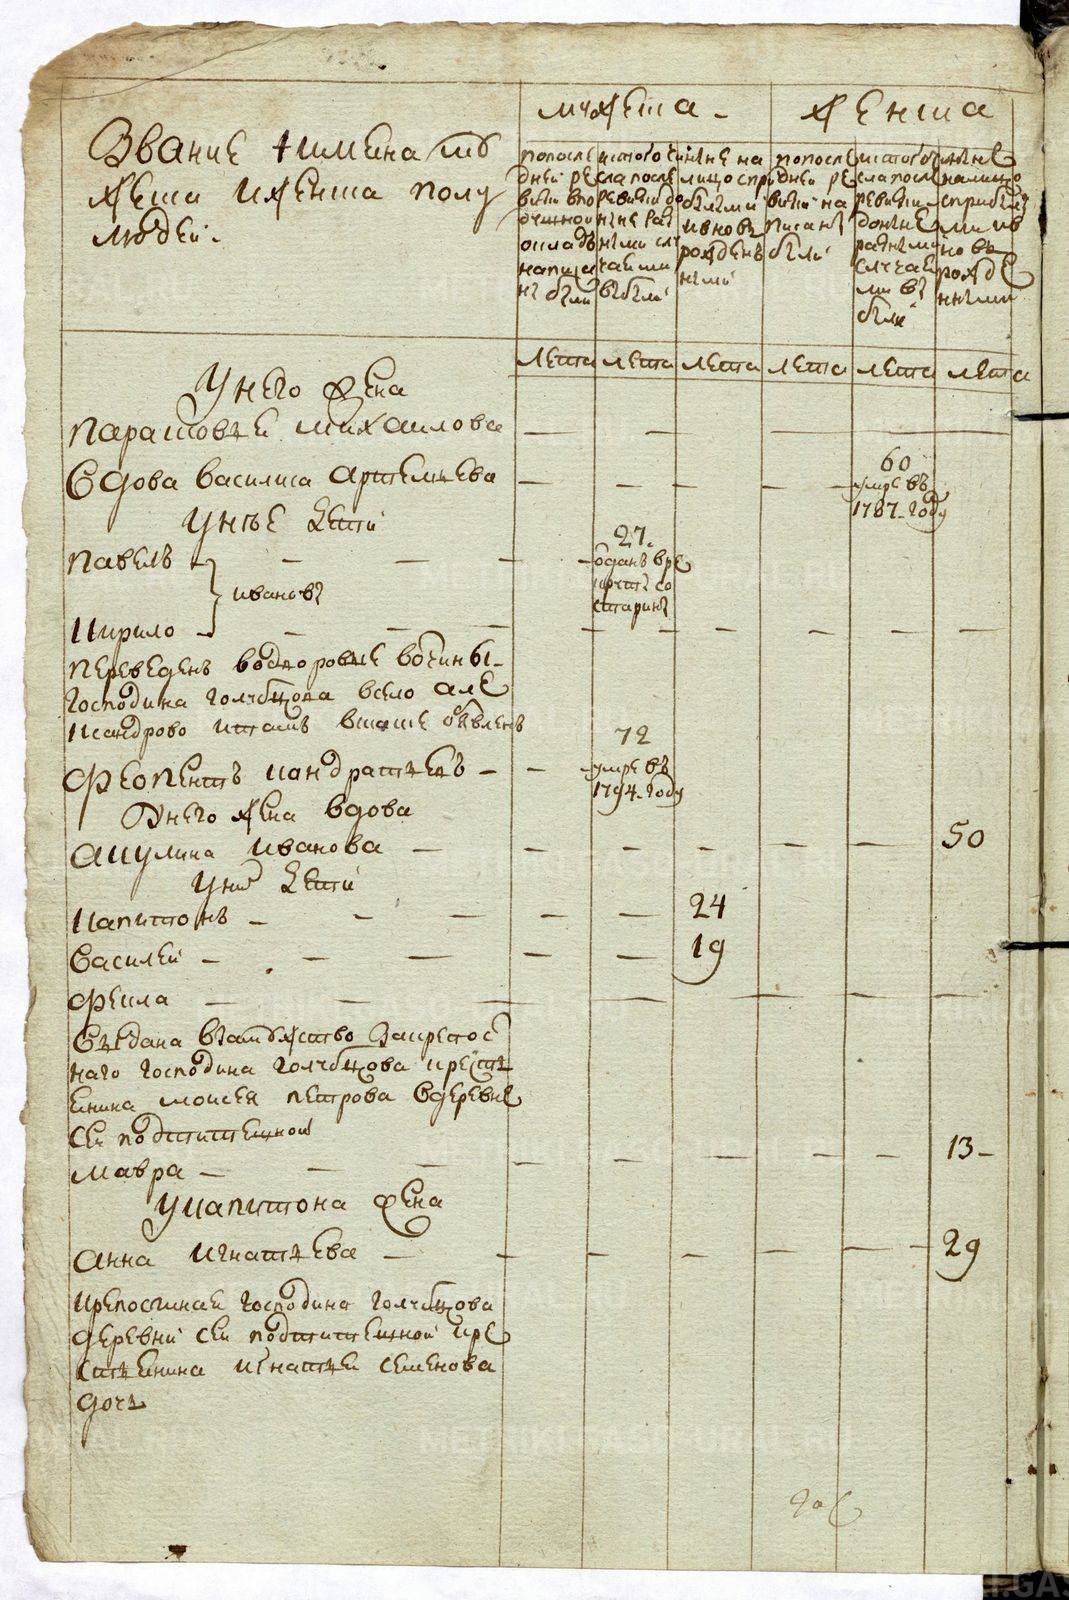 мужеска
женска
Звание и имена муз
жеска и женска полу
людей.
по после
дней ре
визии в по
душном
окладъ
написа
нъ были
ис того чи
сла после
ревизии до
ныне раз
ными слу
чаи ми
выбыли
ныне на
лицо с при
былыми
и вновъ
рожденъ
ными
по после
дней ре
визии на
писаны
были
ис того чи
сла после
ревизии
до ныне
разными
случаи
ми вы
были
ныне
налицо
с прибылы
ми и в
новъ
рожде
нными
лета лета лета лета лета лета
У него жена
парасковья михаилова
60
вдова василиса артемьева
умре въ
1787 году
у нъе дети
27.
павелъ
отданъ в ре
круты со
старины
ивановы
кирило
переведенъ в одноровые вотчины
господина голубцова в село але
ксандрово и тамъ в ските объявленъ
72
феопентъ кондратьевъ
умре въ
1794 году
У него жена вдова
акулина иванова 50
У них дети
капитонъ 24
василей 19
фекла
выдана в замужство за крепос
наго господина голубцова кресть
енина моисея петрова в деревне
сей подпитешной
мавра 13
У капитона жена
анна игнатьева 29
крепосная господина голубцова
деревни сей подпитешной кре
стьенина игнатьи семенова
дочь